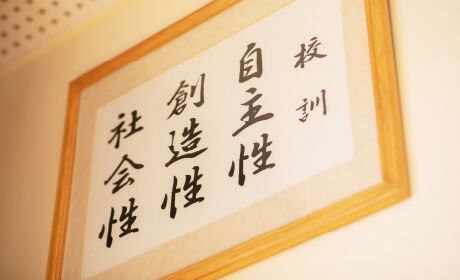 校訓
自主性
創造性
社会性